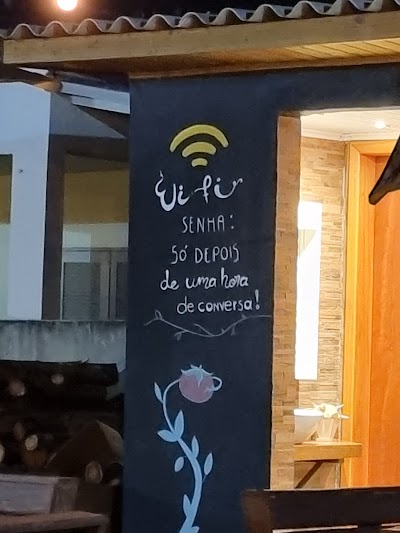 Wifi
SENHA:
SÓ DEPOIS
de uma hora
de conversa!